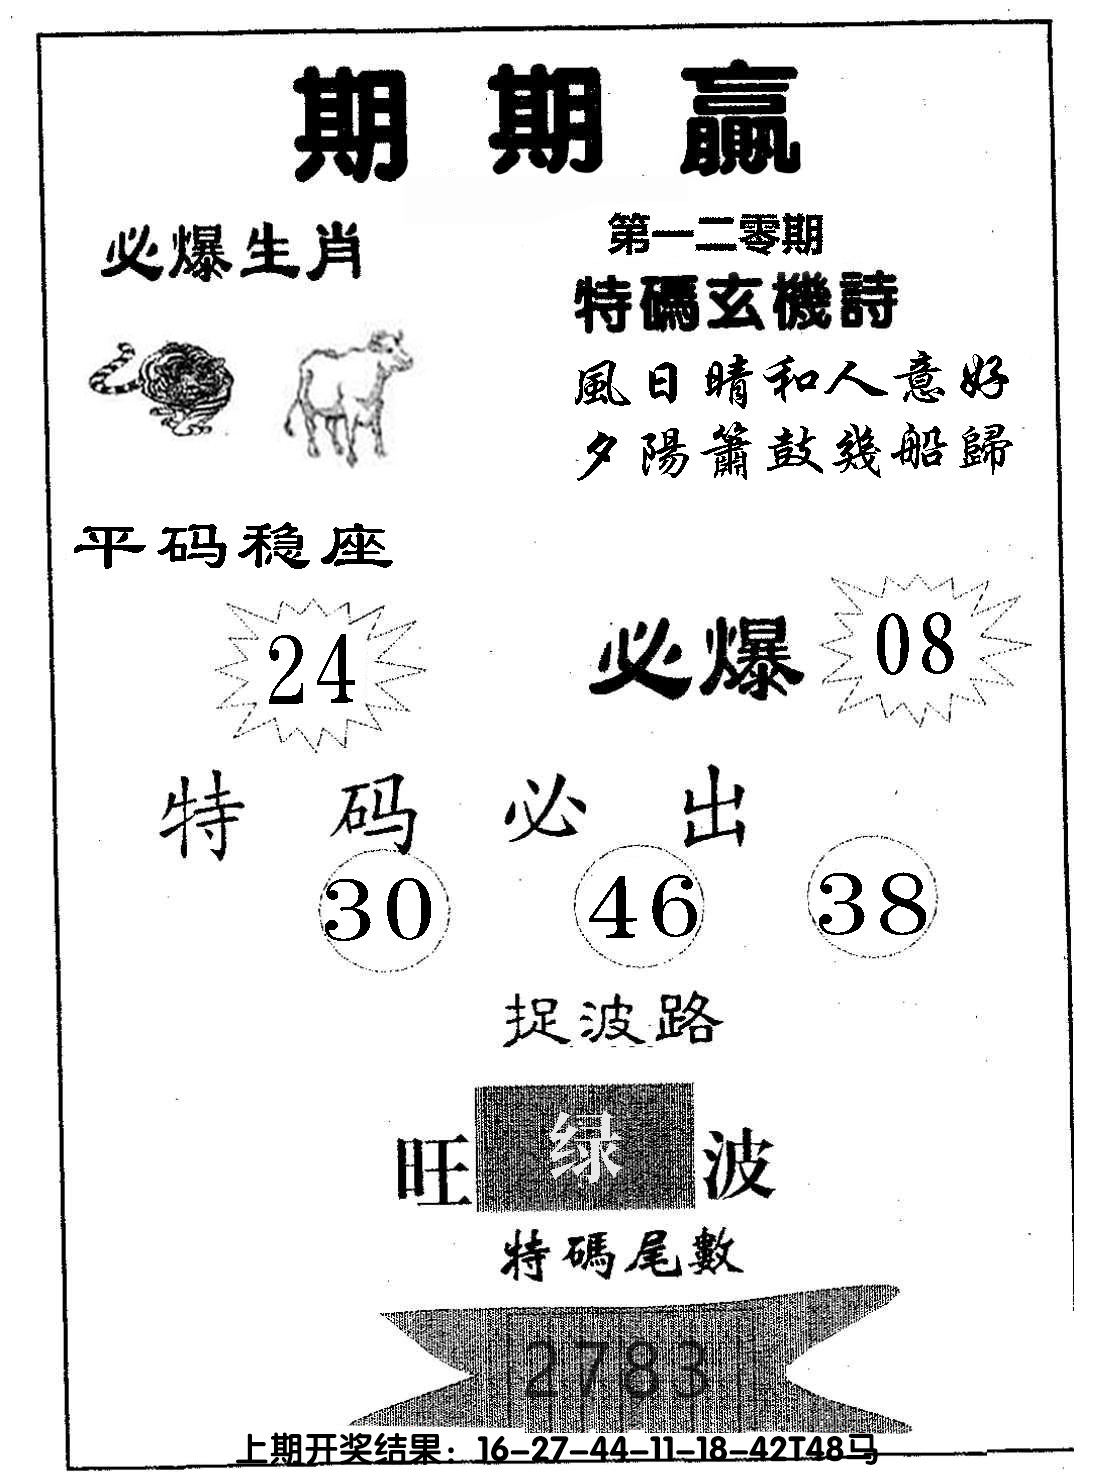 期期贏
必爆生肖
第一二零期
特碼玄機詩
風日晴和人意好
夕陽簫鼓幾船歸
平码稳座
24
必爆 08
特码必出
30 46 38
捉波路
旺 绿 波
特碼尾數
2783
上期开奖结果：16-27-44-11-18-42T48马